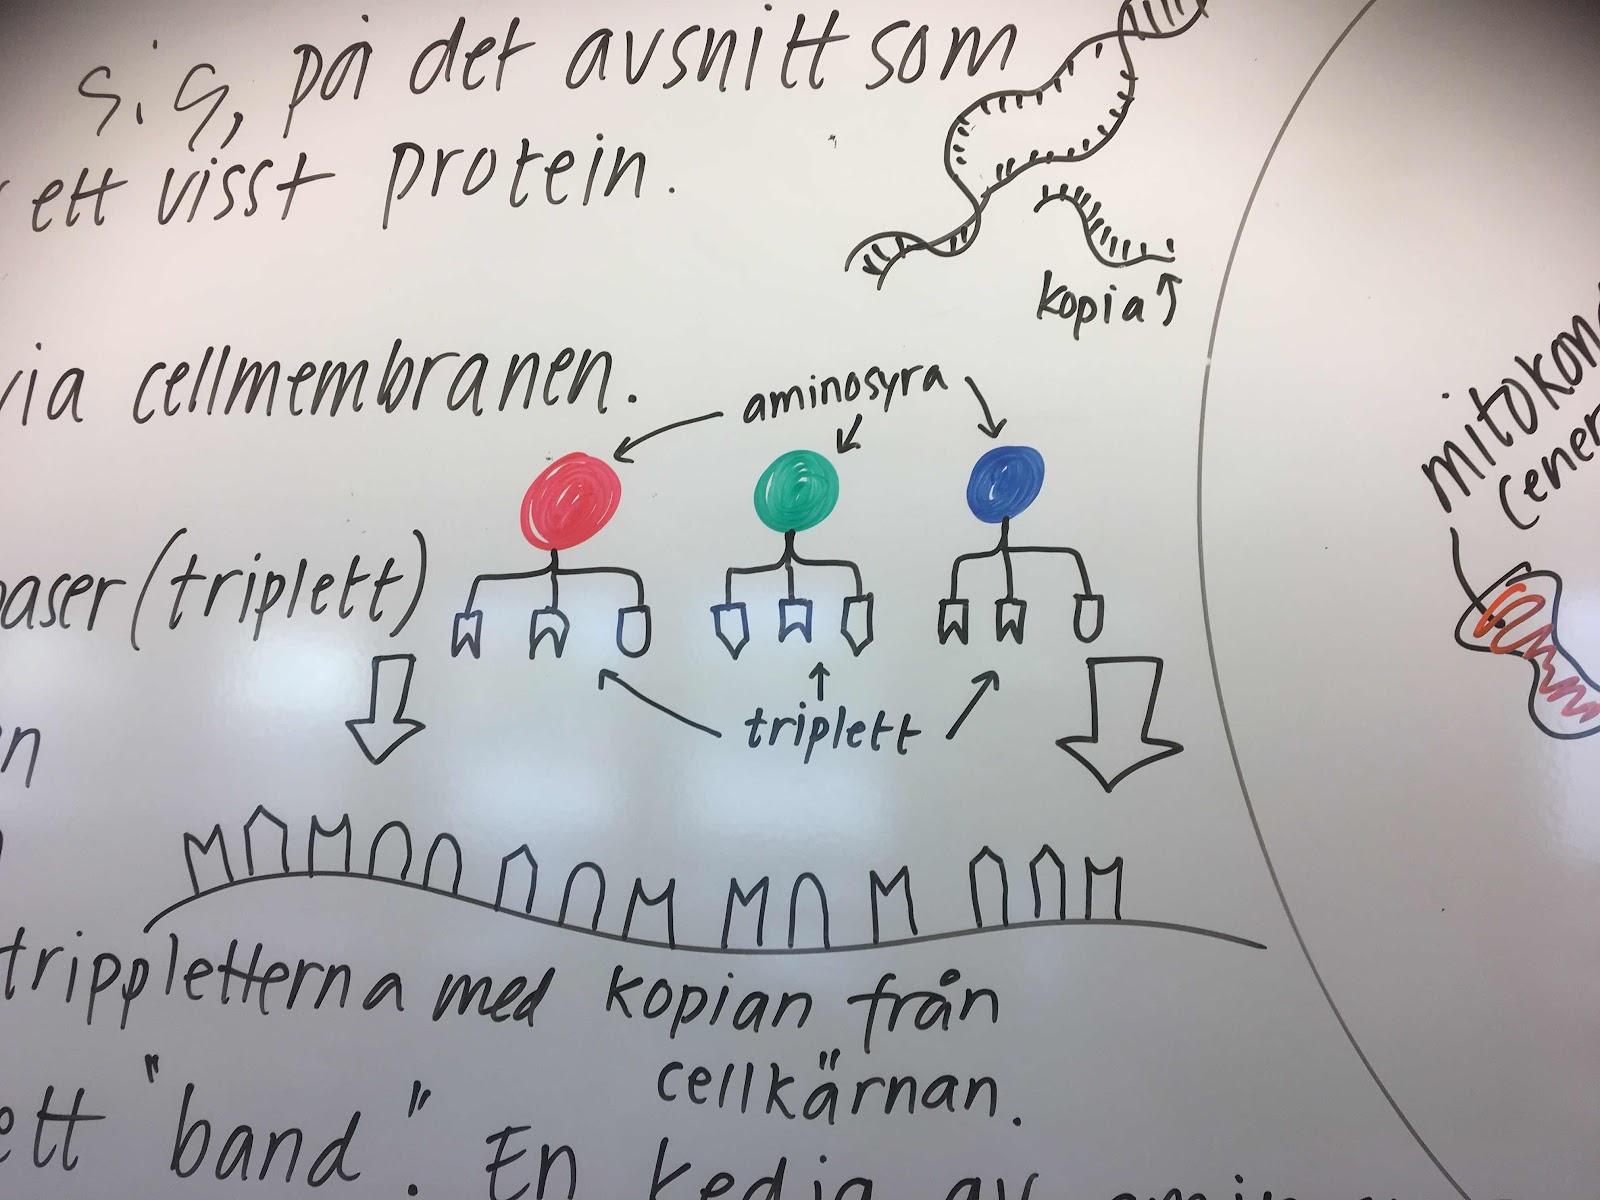 sig, på det avsnitt som
ett visst protein.
kopia
via cellmembranen.
aminosyra
mitokon
(ener
baser (triplett)
triplett
en
trippletterna med kopian från
cellkärnan.
ett "band". En kedja av amin